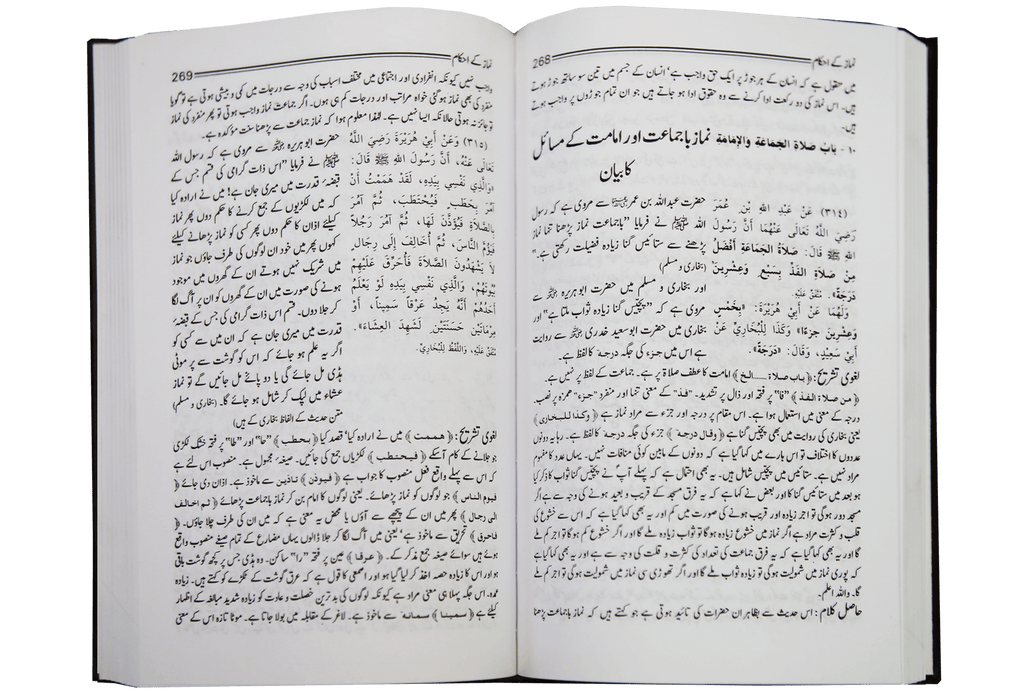 نماز کے احکام 268
میں منقول ہے کہ انسان کے ہر جوڑ پر ایک حق واجب ہے' انسان کے جسم میں تین سو ساٹھ جوڑ ہوتے
ہیں۔ اس نماز کی دو رکعت ادا کرنے سے وہ حقوق ادا ہو جاتے ہیں جو ان تمام جوڑوں پر واجب ہوتے
ہیں۔
١٠ - بَابُ صَلَاةِ الْجَمَاعَةِ وَالإِمَامَةِ نماز باجماعت اور امامت کے مسائل
کا بیان
(٣١٤) عَنْ عَبْدِ اللهِ بْنِ عُمَرَ
رَضِيَ اللَّهُ تَعَالَى عَنْهُمَا أَنَّ رَسُولَ
اللهِ ﷺ قَالَ: صَلَاةُ الْجَمَاعَةِ أَفْضَلُ
مِنْ صَلَاةِ الفَذِّ بِسَبْعٍ وَعِشْرِينَ
دَرَجَةً». مُتَّفَقٌ عَلَيْهِ.
وَلَهُمَا عَنْ أَبِي هُرَيْرَةَ: «بِخَمْسٍ
وَعِشْرِينَ جُزْءًا» وَكَذَا لِلْبُخَارِيِّ عَنْ
أَبِي سَعِيدٍ، وَقَالَ: «دَرَجَةً».
حضرت عبداللہ بن عمر رضی اللہ عنہما سے مروی ہے کہ رسول
اللہ ﷺ نے فرمایا "باجماعت نماز پڑھنا تنہا نماز
پڑھنے سے ستائیس گنا زیادہ فضیلت رکھتی ہے۔"
(بخاری و مسلم)
اور بخاری و مسلم میں حضرت ابوہریرہ رضی اللہ عنہ سے
مروی ہے کہ "پچیس گنا زیادہ ثواب ملتا ہے" اور
بخاری میں حضرت ابوسعید خدری رضی اللہ عنہ سے روایت
ہے اس میں جزء کی جگہ درجہ کا لفظ ہے۔
لغوی تشریح: ﴿باب صلاة ـــ الخ﴾ امامت کا عطف صلاۃ پر ہے۔ جماعت کے لفظ پر نہیں ہے۔
﴿من صلاة الفذ﴾ "فا" پر فتحہ اور ذال پر تشدید۔ "فذ" کے معنی تنہا اور منفرد "جزء" ہمزہ پر نصب
درجہ کے معنی میں استعمال ہوا ہے۔ اس مقام پر درجہ اور جزء سے مراد نماز ہے ﴿وكذا للبخاري﴾
یعنی بخاری کی روایت میں بھی پچیس گنا ہے ﴿وقال درجة﴾ جزء کی جگہ درجہ کا لفظ ہے۔ رہا یہ دونوں
عددوں کا اختلاف تو اس بارے میں کہا گیا ہے کہ دونوں کے مابین کوئی منافات نہیں۔ یہاں عدد کا مفہوم
مراد نہیں ہے۔ ستائیس میں پچیس شامل ہیں۔ یہ بھی احتمال ہے کہ پہلے آپ نے پچیس گنا ثواب کا ذکر کیا
ہو بعد میں ستائیس گنا کا اور بعض نے کہا ہے کہ یہ فرق مسجد کے قریب و بعید ہونے کی وجہ سے ہے اگر
مسجد دور ہوگی تو اجر زیادہ اور قریب ہونے کی صورت میں کم اور یہ بھی کہا گیا ہے کہ اس سے خشوع کی
قلت و کثرت مراد ہے اگر نماز میں خشوع زیادہ ہوگا تو ثواب زیادہ ملے گا اور اگر خشوع کم ہوگا تو اجر کم ملے
گا اور یہ بھی کہا گیا ہے کہ یہ فرق جماعت کی تعداد کی کثرت و قلت کی وجہ سے ہے اور یہ بھی کہا گیا ہے
کہ پوری نماز میں شمولیت ہوگی تو زیادہ ثواب ملے گا اور اگر تھوڑی سی نماز میں شمولیت ہوگی تو اجر کم ملے
گا۔ واللہ اعلم۔
حاصل کلام: اس حدیث سے بظاہر ان حضرات کی تائید ہوتی ہے جو کہتے ہیں کہ نماز باجماعت پڑھنا
نماز کے احکام 269
واجب نہیں کیونکہ انفرادی اور اجتماعی میں مختلف اسباب کی وجہ سے درجات میں کمی و بیشی ہوتی ہے تو گویا
منفرد کی بھی نماز ہو گئی خواہ مراتب اور درجات کم ہی ہوں۔ اگر جماعت نماز واجب ہوتی تو پھر منفرد کی نماز
تو جائز نہ ہوتی حالانکہ ایسا نہیں ہے۔ لہٰذا معلوم ہوا کہ نماز جماعت سے پڑھنا سنت مؤکدہ ہے۔
(٣١٥) وَعَنْ أَبِي هُرَيْرَةَ رَضِيَ اللَّهُ
تَعَالَى عَنْهُ، أَنَّ رَسُولَ اللهِ ﷺ قَالَ:
«وَالَّذِي نَفْسِي بِيَدِهِ، لَقَدْ هَمَمْتُ أَنْ
آمُرَ بِحَطَبٍ، فَيُحْتَطَبَ، ثُمَّ آمُرَ
بِالصَّلَاةِ فَيُؤَذَّنَ لَهَا، ثُمَّ آمُرَ رَجُلاً
فَيَؤُمَّ النَّاسَ، ثُمَّ أُخَالِفَ إِلَى رِجَالٍ
لَا يَشْهَدُونَ الصَّلَاةَ فَأُحَرِّقَ عَلَيْهِمْ
بُيُوتَهُمْ، وَالَّذِي نَفْسِي بِيَدِهِ لَوْ يَعْلَمُ
أَحَدُهُمْ أَنَّهُ يَجِدُ عَرْقاً سَمِيناً، أَوْ
مِرْمَاتَيْنِ حَسَنَتَيْنِ لَشَهِدَ العِشَاءَ».
مُتَّفَقٌ عَلَيْهِ، وَاللَّفْظُ لِلْبُخَارِيِّ.
حضرت ابوہریرہ رضی اللہ عنہ سے مروی ہے کہ رسول اللہ
ﷺ نے فرمایا "اس ذات گرامی کی قسم جس کے
قبضۂ قدرت میں میری جان ہے! میں نے ارادہ کیا
کہ میں لکڑیوں کے جمع کرنے کا حکم دوں پھر نماز
کیلئے اذان کا حکم دوں پھر کسی کو نماز پڑھانے کیلئے
کہوں پھر میں خود ان لوگوں کی طرف جاؤں جو نماز
میں شریک نہیں ہوتے ان کے گھروں میں موجود
ہونے کی صورت میں ان کے گھروں کو ان پر آگ لگا
کر جلا دوں۔ قسم اس ذات گرامی کی جس کے قبضۂ
قدرت میں میری جان ہے کہ ان میں سے کسی کو
اگر یہ علم ہو جائے کہ اس کو گوشت سے پر موٹی
ہڈی مل جائے گی یا دو پائے مل جائیں گے تو نماز
عشاء میں لپک کر شامل ہو جائے گا۔ (بخاری و مسلم)
متن حدیث کے الفاظ بخاری کے ہیں)
لغوی تشریح: ﴿هممت﴾ میں نے ارادہ کیا' قصد کیا ﴿بحطب﴾ "حا" اور "طا" پر فتحہ خشک لکڑی
جو جلانے کے کام آسکے ﴿فيحتطب﴾ لکڑیاں جمع کی جائیں۔ صیغہ مجہول ہے۔ منصوب اس لئے ہے
کہ اس سے پہلے واقع فعل منصوب کا جواب ہے ﴿فيؤذن﴾ تاذین سے ماخوذ ہے۔ اذان دی جائے ﴿
فيؤم الناس﴾ جو لوگوں کو نماز پڑھائے۔ یعنی لوگوں کا امام بن کر نماز باجماعت پڑھائے ﴿ثم اخالف
الى رجال﴾ پھر میں ان کے پیچھے سے آؤں یا محض یہ معنی ہے کہ میں ان کی طرف چلا جاؤں۔ ﴿
فاحرق﴾ تحریق سے ماخوذ ہے' یعنی میں آگ لگا کر جلا ڈالوں یہاں مضارع کے تمام صیغے منصوب واقع
ہوئے ہیں سوائے صیغہ جمع مذکر کے۔ ﴿عرقا﴾ عین پر فتحہ "را" ساکن۔ وہ ہڈی جس پر کچھ گوشت باقی
ہو اور اس کا زیادہ حصہ اخذ کر لیا گیا ہو اور اصمعی کا قول ہے کہ عرق گوشت کے ٹکڑے کو کہتے ہیں۔ زیادہ
عمدہ۔ اس جگہ پہلا ہی معنی مراد ہے کیونکہ لوگوں کی بدترین خصلت و عادت کو زیادہ شدید مبالغہ کے اظہار
کیلئے ہے ﴿سمينا﴾ سمانة سے ماخوذ ہے۔ لاغر کے مقابلہ میں بولا جاتا ہے۔ موٹا تازہ اس کے معنی